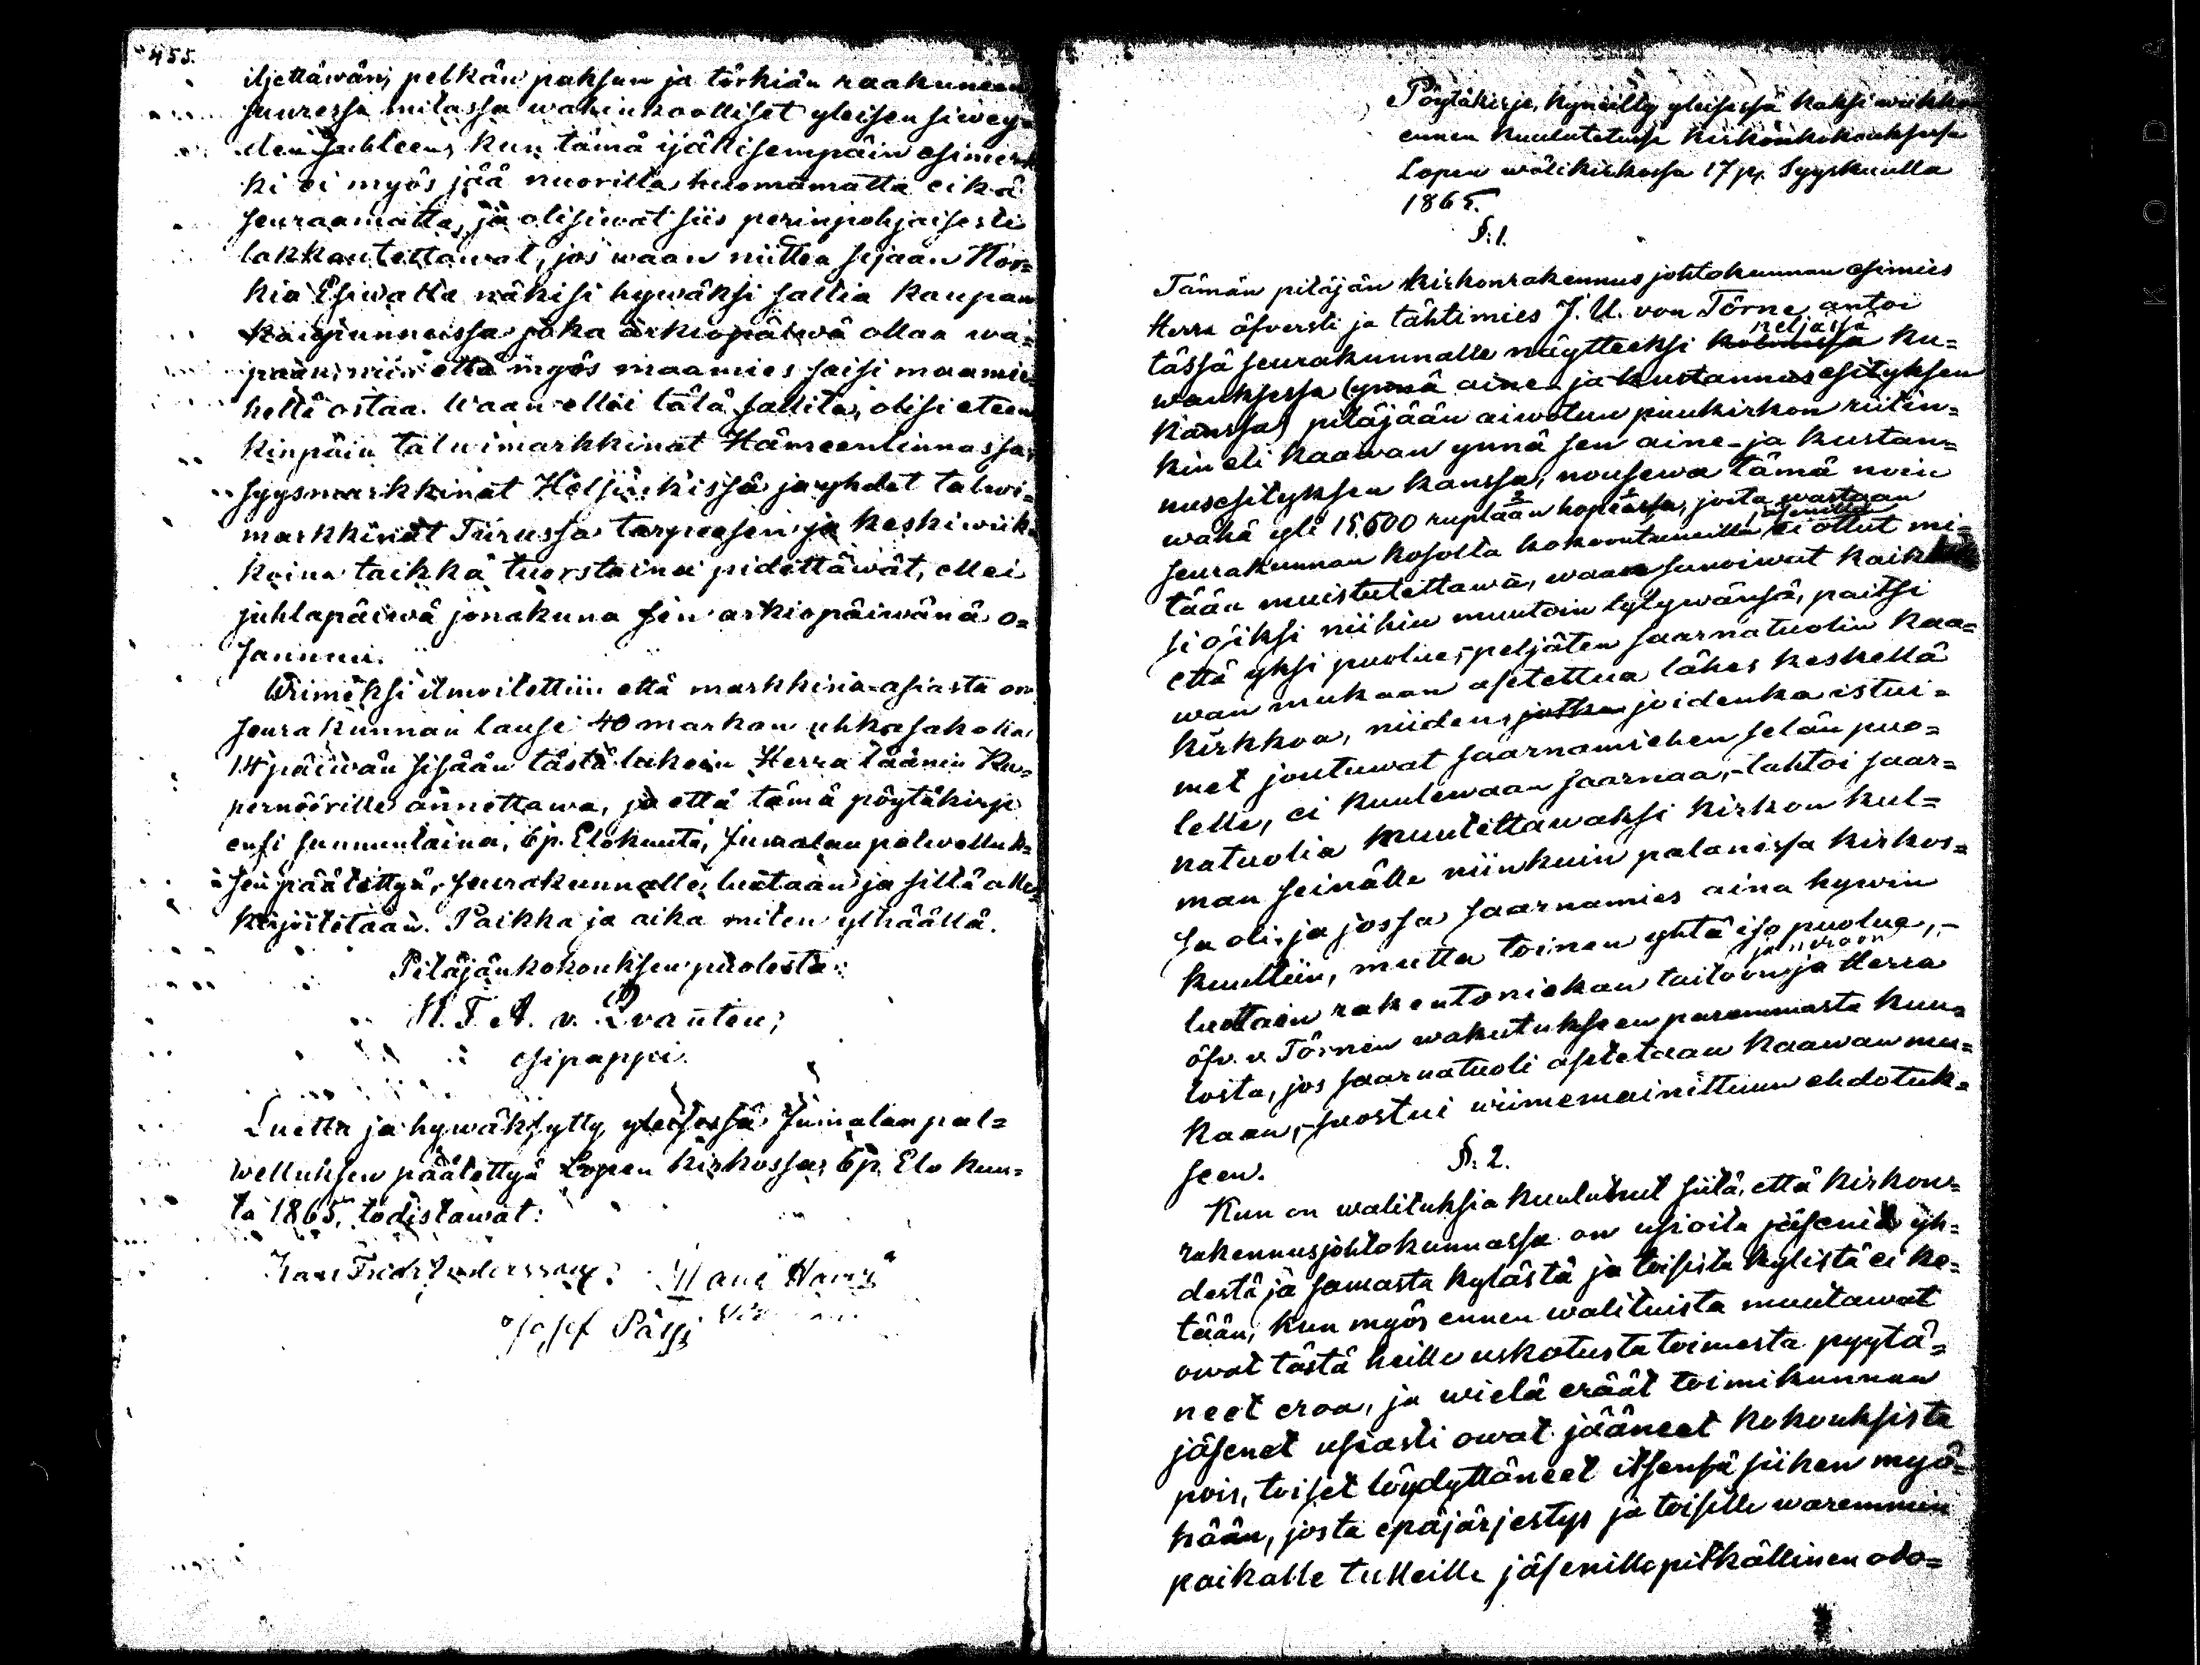 455.
iljettäwän, pelkän paksun ja törkiän raakuneen
suuressa mitassa wahinkoolliset yleisen siwey=
den suhteen, kun tämä ijällisempäin esimerk
ki ei myös jää nuorilta huomamatta eikä
seuraamatta, ja olisiwat siis perinpohjaisesti
lakkautettawat, jos waan niitten sijaan Kor=
kia Esiwalta näkisi hywäksi sallia kaupan
kaupunneissa joka arkiopäiwä ollan wa=
paan, niin että myös maamies saisi maamie=
heltä ostaa. Waan ellei tätä sallita, olisi eteen
kinpäin talwimarkkinat Hämeenlinnassa,
syysmarkkinat Helsinkissä ja yhdet talwi=
markkinat Turussa tarpeesen ja keskiwiik=
koina taikka tuorstaina pidettäwät, ellei
juhlapäiwä jonakuna sen arkiopäiwänä o=
sannuu.
Wiimeksi ilmoitettiin että markkina-asiasta on
seurakunnan lause 40 markan uhkasakolla
14 päiwän sisään tästä lukein Herra läänin Ku=
pernöörille annettawa, ja että tämä pöytäkirja
ensi sunnuntaina, 6 p. Elokuuta, Jumalan palwelluk=
sen päätettyä, seurakunnalle luetaan ja sillä alle=
kirjoitetaan. Paikka ja aika miten ylhäällä.
Pitäjänkokouksen puolesta:
H. F. A. v. Qvanten;
esipappi.
Luettu ja hywäksytty yleisessä Jumalan pal=
welluksen päätettyä Lopen kirkossa, 6 p. Elo kuu=
ta 1865, todistawat:
Josef Pässi
Pöytäkirja, kyneilty yleisessä kaksi wiikkoa
ennen kuulutetussa kirkonkokouksessa
Lopen wälikirkossa 17 p. Syyskuulla
1865.
§. 1.
Tämän pitäjän kirkonrakennusjohtokunnan esimies
Herra öfversti ja tähtimies J. U. von Törne antoi
neljässä
tässä seurakunnalle näytteeksi kolmessa ku=
wauksessa (ynnä aine- ja kustannusesityksen
kanssa) pitäjään aiwotun puukirkon riitin=
kin eli kaawan ynnä sen aine- ja kustan=
nusesityksen kanssa, nousewa tämä noin
wähä yli 15,600 ruplaan hopeassa, josta wastaan
jäsenillä
seurakunnan kosolta kokoontuneilla ei ollut mi=
tään muistutettawa, waan sanoiwat kaikki
si oiksi niihin muutoin tytywänsä, paitsi
että yksi puolue, peljäten saarnatuolin kaa=
wan mukaan asetettua lähes keskellä
kirkkoa, niiden, jotka joidenka istui=
met joutuwat saarnamiehen selän puo=
lelle, ei kuulewaan saarnaa, - tahtoi saar=
natuolia muutettawaksi kirkon kul=
man seinälle niinkuin palanissa kirkos=
sa oli, ja jossa saarnamies aina hywin
kuultiin, mutta toinen yhtä iso puolue, -
ja neroon
luottain rakentoniekan taitoon ja Herra
öfv. v. Törnen wakutukseen paremmasta kuu=
losta, jos saarnatuoli asetetaan kaawan mu=
kaan, - suostui wiimemainittuun ehdotuk=
seen.
§. 2.
Kun on walituksia kuulutuut siitä, että kirkon=
rakennusjohtokunnassa on usioita jäseniä yh=
destä ja samasta kylästä ja toisista kylistä ei ke=
tään, kun myös ennen walituista muutawat
owat tästä heille uskotusta toimesta pyytä=
neet eroa, ja wielä eräät toimikunnan
jäsenet usiasti owat jääneet kokouksista
pois, toiset löydyttäneet itsensä siihen myö=
hään, josta epäjärjestys ja toisille waremmin
paikalle tulleille jäsenille pitkällinen odo=
KODA